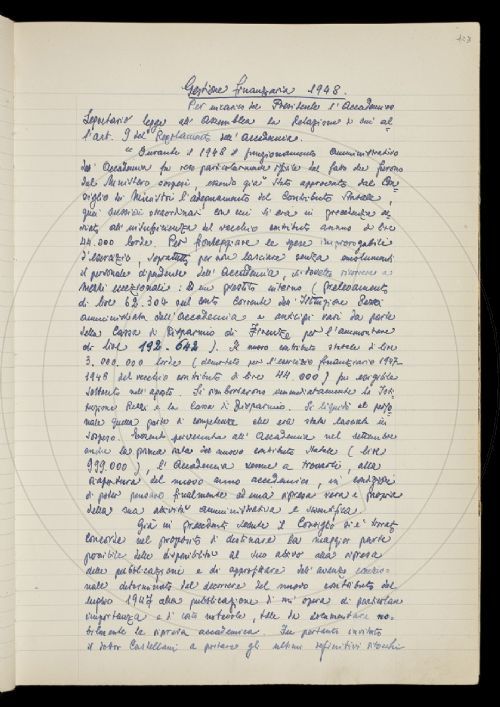 123
Gestione finanziaria 1948.
Per incarico del Presidente l'Accademico
Segretario legge all'Assemblea la Relazione di cui al-
l'art. 9 del Regolamento dell'Accademia.
"Durante il 1948 il funzionamento amministrativo
dell'Accademia fu reso particolarmente difficile dal fatto che furono
dal Ministero sospesi, essendo già stato approvato dal Con-
siglio dei Ministri l'adeguamento del Contributo Statale,
quei sussidi straordinari con cui si era in precedenza ov-
viato all'insufficienza del vecchio contributo annuo di lire
44.000 lorde. Per fronteggiare le spese improrogabili
d'esercizio, soprattutto per non lasciare senza emolumenti
il personale dipendente dell'Accademia, si dovette ricorrere a
mezzi eccezionali: ad un prestito interno (prelevamento
di lire 62.304 sul conto corrente dell'Istituzione
amministrata dall'Accademia e anticipi vari da parte
della Cassa di Risparmio di Firenze per l'ammontare
di lire 192.642). Il nuovo contributo statale di lire
3.000.000 lorde (decurtato per l'esercizio finanziario 1947-
1948 del vecchio contributo di lire 44.000) fu esigibile
soltanto nell'agosto. Si rimborsarono immediatamente la Isti-
tuzione e la Cassa di Risparmio. Si liquidò al perso-
nale quella parte di competenze che era stata lasciata in
sospeso. Essendo pervenuta all'Accademia nel settembre
anche la prima rata del nuovo contributo statale (lire
999.000), l'Accademia venne a trovarsi, alla
riapertura del nuovo anno accademico, in condizioni
di poter pensare finalmente ad una ripresa vera e propria
della sua attività amministrativa e scientifica.
Già in precedenti sedute il Consiglio si è trovato
concorde nel proposito di destinare la maggior parte
possibile delle disponibilità al suo attivo alla ripresa
delle pubblicazioni e di approfittare dell'avanzo eccezio-
nale determinato dal decorrere del nuovo contributo dal
luglio 1947 alla pubblicazione di un'opera di particolare
importanza e di costo notevole, tale da documentare no-
bilmente la ripresa accademica. Fu pertanto invitato
il dottor Castellani a portare gli ultimi definitivi ritocchi